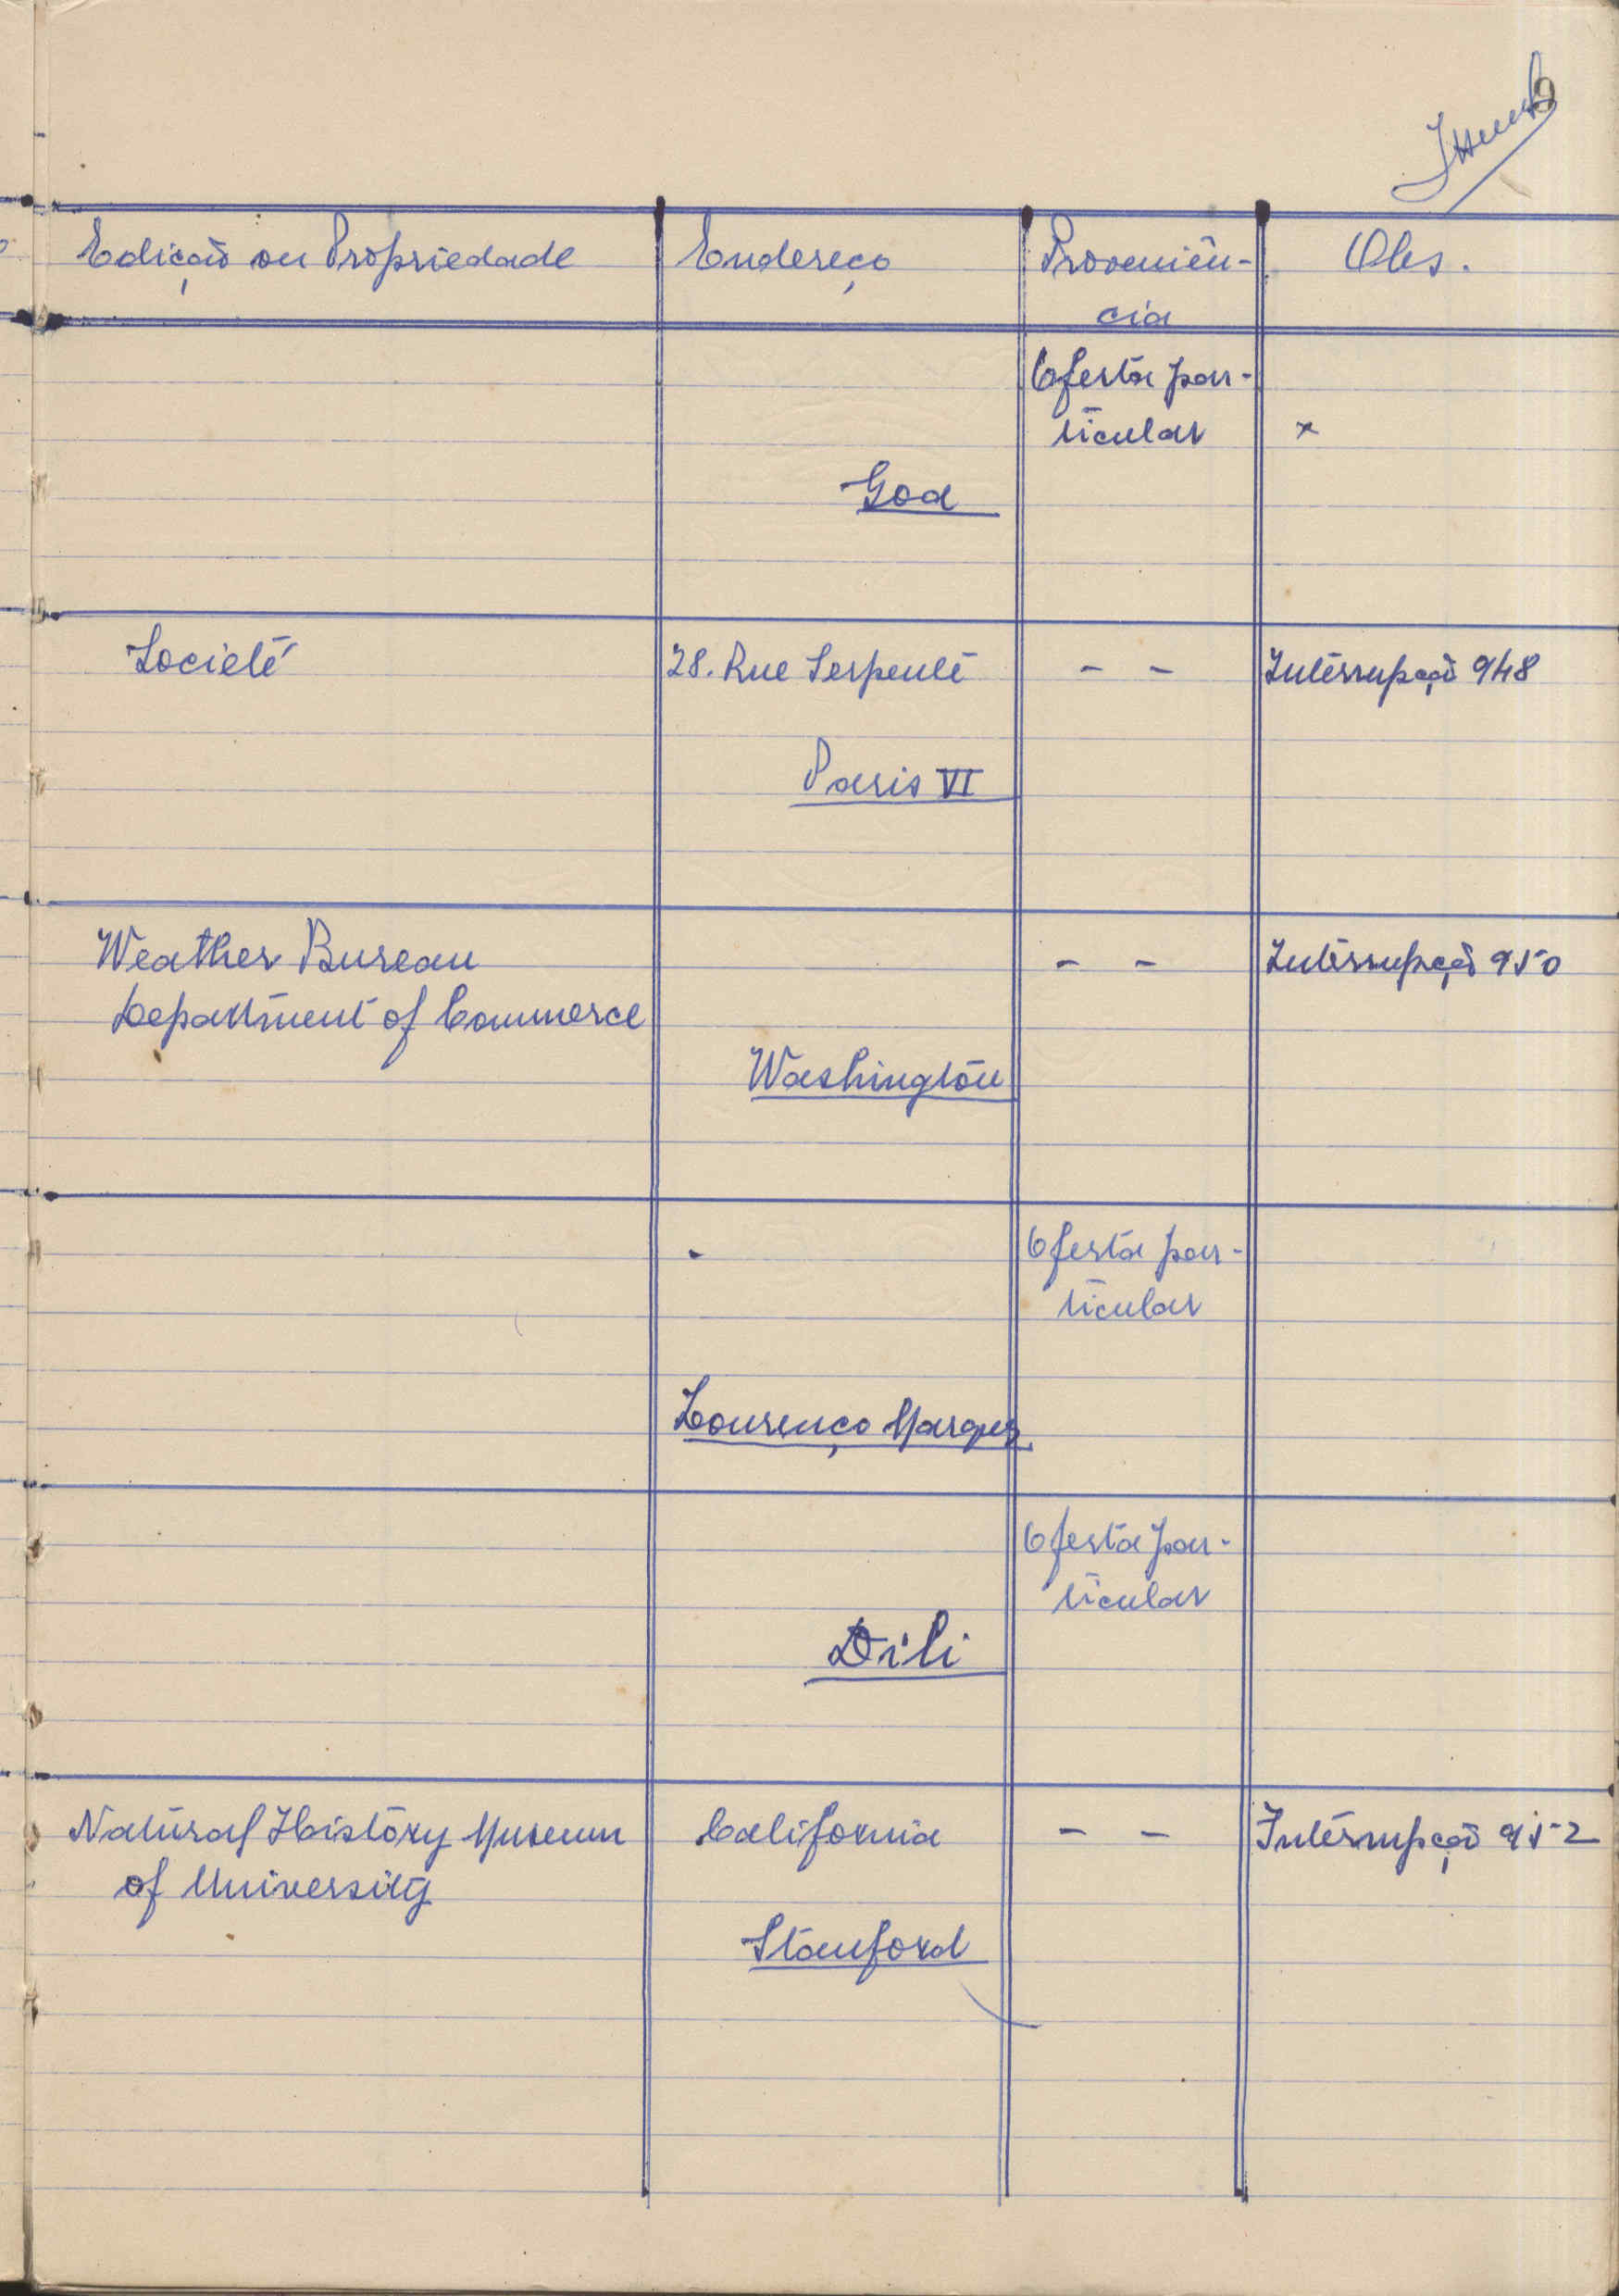 Edição ou Propriedade Endereço Proveniên- Obs.
cia
Oferta par-
ticular x
Goa
Societé 28. Rue Serpente - - Interrupção 948
Paris VI
Weather Bureau - - Interrupção 950
Department of Commerce
Washington
- Oferta par-
ticular
Lourenço Marques
Oferta par-
ticular
Dili
Natural History Museum California - - Interrupção 952
of University
Stanford